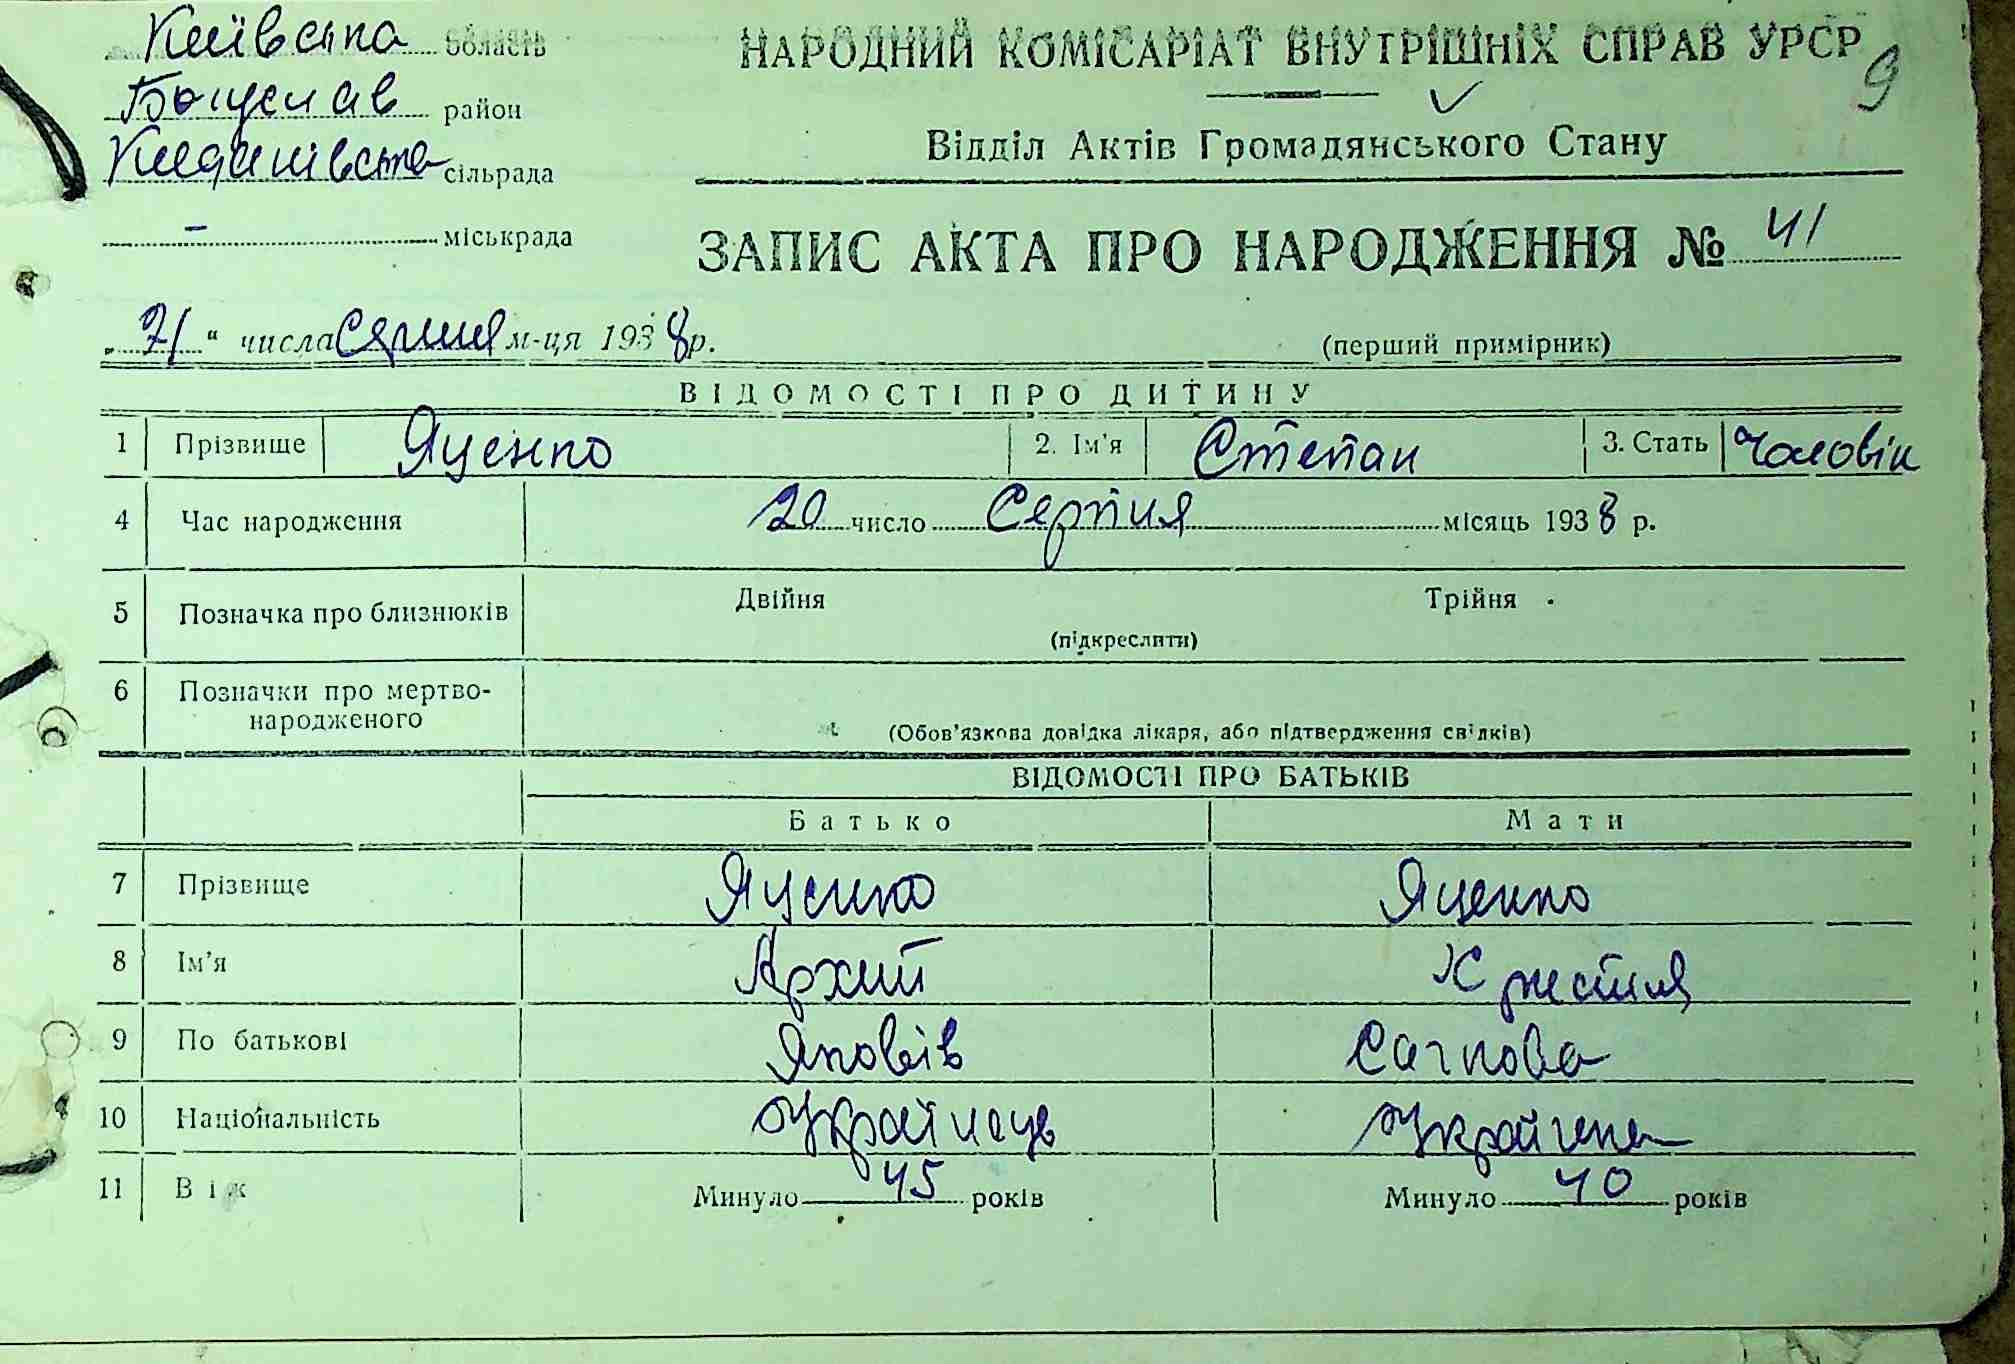 Київська область
Богуслав район
Киданівська сільрада
- міськрада
НАРОДНИЙ КОМІСАРІАТ ВНУТРІШНІХ СПРАВ УРСР
9
Відділ Актів Громадянського Стану
ЗАПИС АКТА ПРО НАРОДЖЕННЯ № 41
„21“ числа Серпня м-ця 1938 р.
(перший примірник)
ВІДОМОСТІ ПРО ДИТИНУ
1 Прізвище Яценко 2. Ім'я Степан 3. Стать Чоловік
4 Час народження 20 число Серпня місяць 1938 р.
5 Позначка про близнюків Двійня Трійня
(підкреслити)
6 Позначки про мертво-
народженого
(Обов'язкова довідка лікаря, або підтвердження свідків)
ВІДОМОСТІ ПРО БАТЬКІВ
Батько Мати
7 Прізвище Яценко Яценко
8 Ім'я Архип
9 По батькові Яковів
10 Національність Українець Українка
11 Вік Минуло 45 років Минуло 40 років